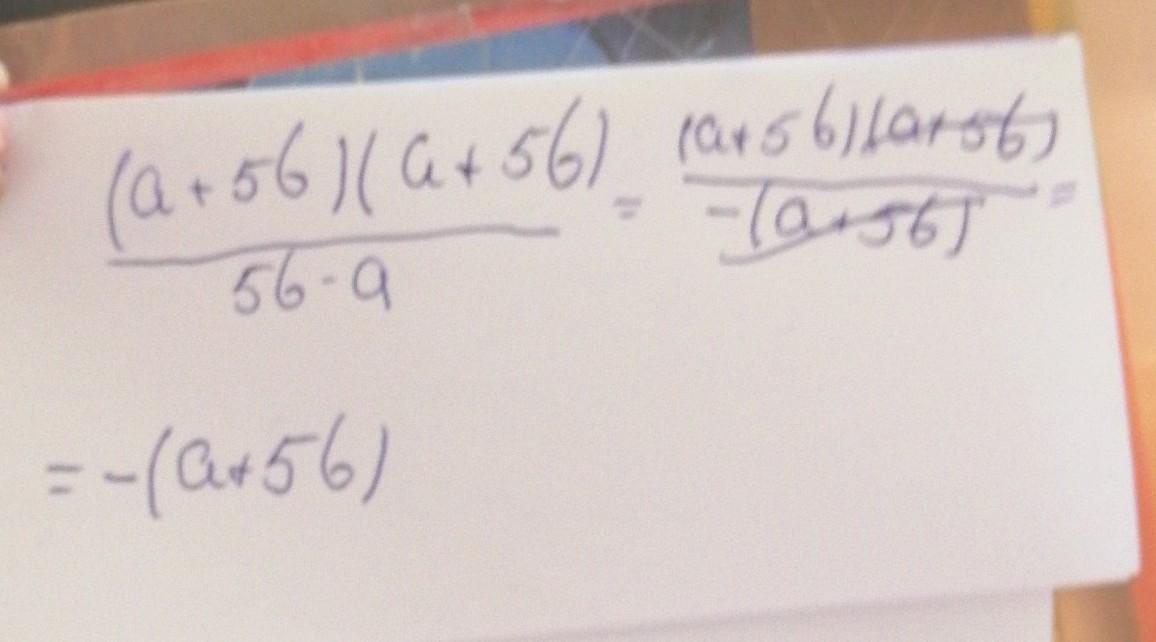 (a+5b)(a+5b) / 5b-a = (a+5b)(a+5b) / -(a+5b) =
= -(a+5b)